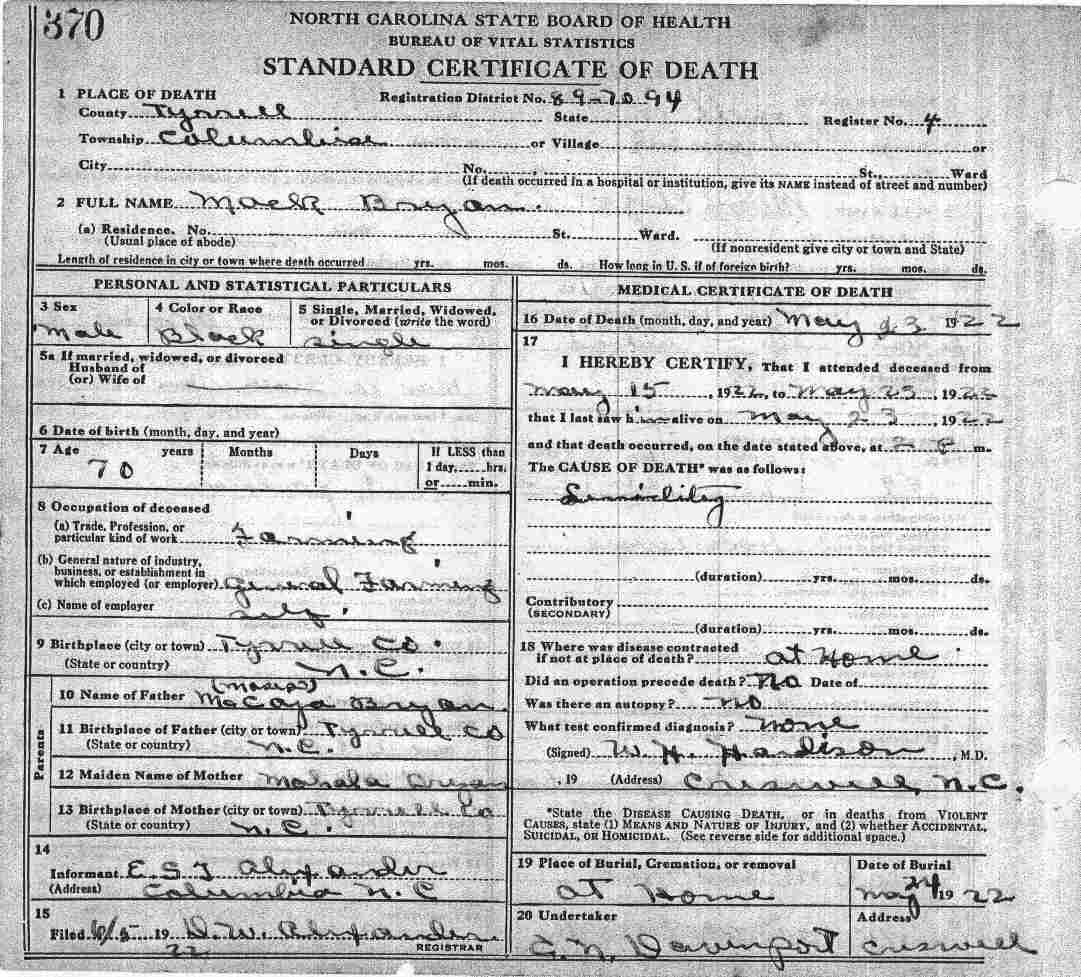 370
NORTH CAROLINA STATE BOARD OF HEALTH
BUREAU OF VITAL STATISTICS
STANDARD CERTIFICATE OF DEATH
1 PLACE OF DEATH Registration District No. 89-7094
County Tyrrell State Register No. 4
Township Columbia or Village or
City No. , St., Ward
(If death occurred in a hospital or institution, give its NAME instead of street and number)
2 FULL NAME Mack Bryan.
(a) Residence. No. St. Ward.
(Usual place of abode) (If nonresident give city or town and State)
Length of residence in city or town where death occurred yrs. mos. ds. How long in U. S. if of foreign birth? yrs. mos. ds.
PERSONAL AND STATISTICAL PARTICULARS
3 Sex 4 Color or Race 5 Single, Married, Widowed, or Divorced (write the word)
Male Black single
5a If married, widowed, or divorced
Husband of
(or) Wife of
6 Date of birth (month, day, and year)
7 Age years Months Days If LESS than
70 1 day, hrs.
or min.
8 Occupation of deceased
(a) Trade, Profession, or
particular kind of work Farming
(b) General nature of industry,
business, or establishment in
which employed (or employer) General Farming
(c) Name of employer self
9 Birthplace (city or town) Tyrrell Co.
(State or country) N.C.
10 Name of Father McCaja Bryan
11 Birthplace of Father (city or town) Tyrrell Co
(State or country) N.C.
12 Maiden Name of Mother Mahala Bryan
13 Birthplace of Mother (city or town) Tyrrell Co
(State or country) N.C.
Parents
14
Informant E.S.T Alexander
(Address) Columbia N.C
15
Filed 6/5 19 D.W. Alexander
22 REGISTRAR
MEDICAL CERTIFICATE OF DEATH
16 Date of Death (month, day, and year) May 23 1922
17
I HEREBY CERTIFY, That I attended deceased from
May 15, 1922, to May 23, 1922
that I last saw him alive on May 23, 1922
and that death occurred, on the date stated above, at m.
The CAUSE OF DEATH* was as follows:
(duration) yrs. mos. ds.
Contributory
(SECONDARY)
(duration) yrs. mos. ds.
18 Where was disease contracted
if not at place of death? at Home
Did an operation precede death? No Date of
Was there an autopsy? No
What test confirmed diagnosis? None
(Signed) W. H. Hardison, M.D.
, 19 (Address) Creswell, N.C.
*State the DISEASE CAUSING DEATH, or in deaths from VIOLENT
CAUSES, state (1) MEANS AND NATURE OF INJURY, and (2) whether ACCIDENTAL,
SUICIDAL, OR HOMICIDAL. (See reverse side for additional space.)
19 Place of Burial, Cremation, or removal Date of Burial
at Home May 24 1922
20 Undertaker Address
C. N. Davenport Creswell